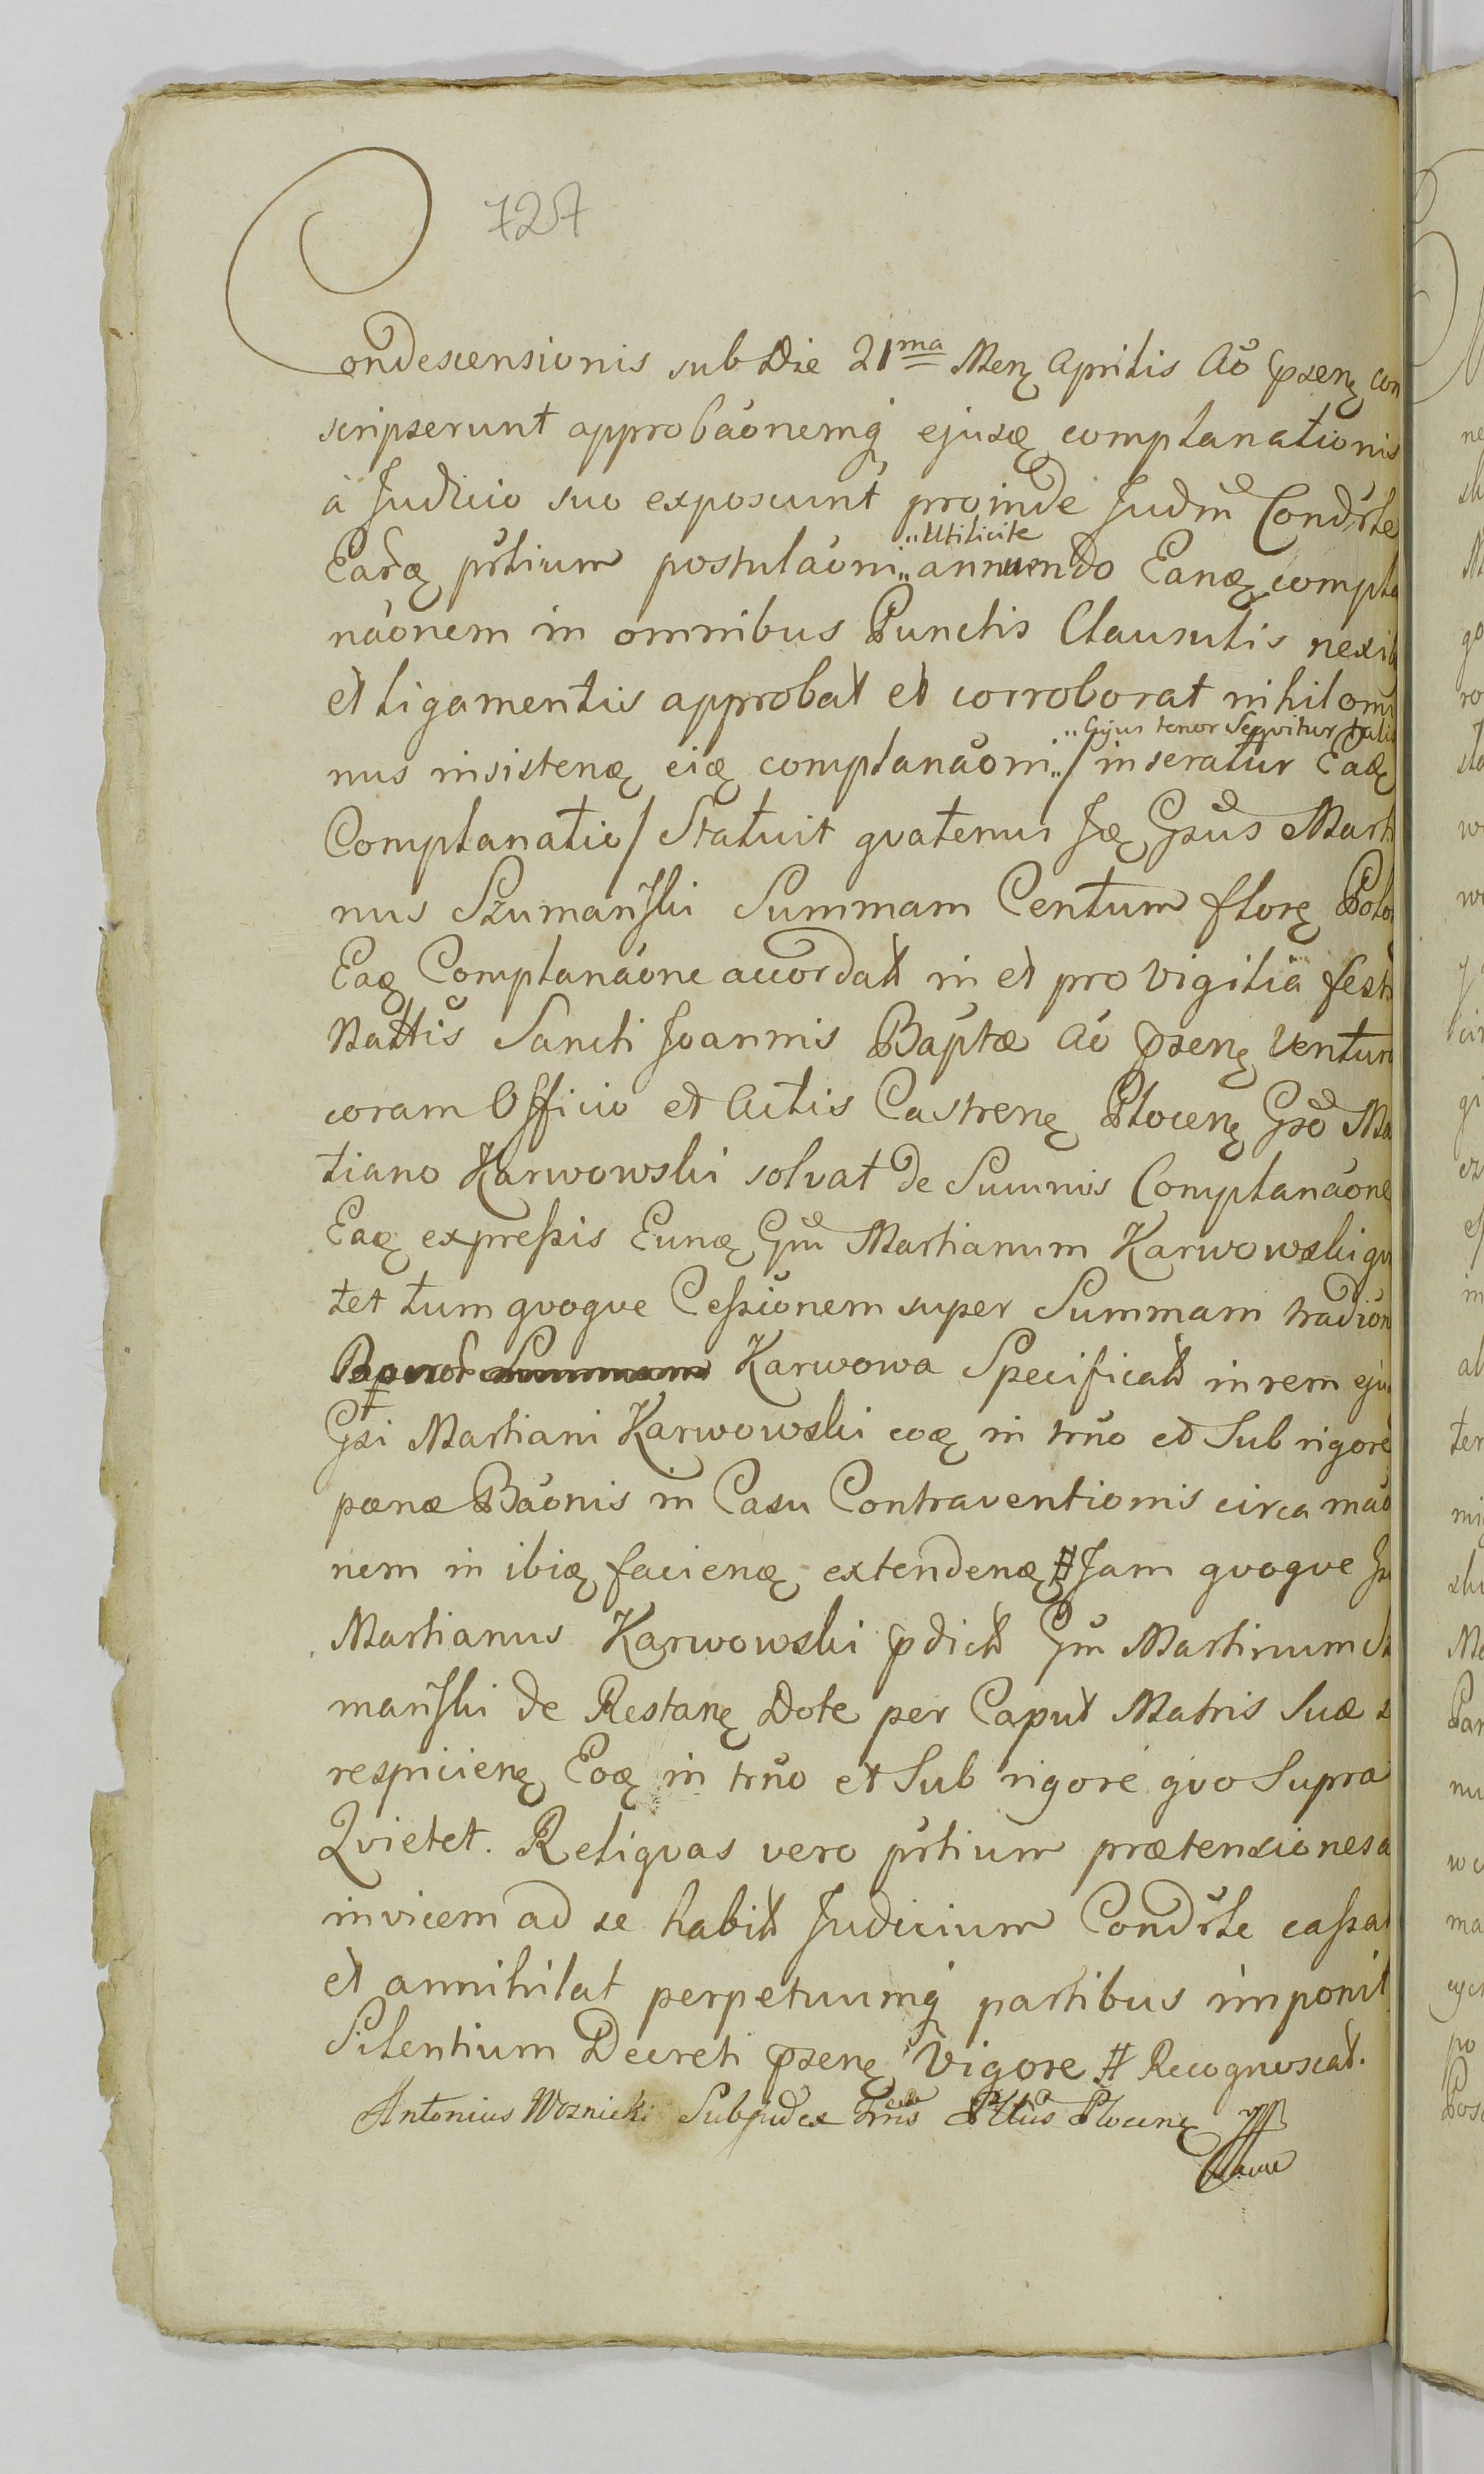 727
Condescensionis sub Die 21ma Menę Aprilis Aõ pzenę con
scripserunt approbãonemq ejusą complanationis
à Judicio suo exposcunt proinde Judm Condrle
Earą prtium postulãoni „Utilicite annuendo Eaną compla
nãonem in omnibus Punctis Clausulis nexib
et ligamentis approbat et corroborat nihilomi
nus insisteną eią complanãoni „Cujus tenor Seqvitur talis / inseratur Eadą
Complanatio / Statuit qvatenus Ją Gsus Marti
nus Szumański Summam Centum florę Polo
Eaą Complanãone accordatt in et pro Vigilia festi
Nattis Sancti Joannis Baptæ Aõ pzenę Ventur
coram Officio et Actis Castrenę Plocenę Gso Ma
tiano Karwowski solvat de Summis Complanãone
Eaą expressis Euną Gm Martianum Karwowski qvi
tet tum qvoqve Cessionem super Summam tradiõn
Karwowa Specificatt in rem eju
Gsi Martiani Karwowski eoą in trno et Sub rigore
pœnæ Bãonis in Casu Contraventionis circa mão
nem in ibią facieną extendeną # Jam qvoqve Gs
Martianus Karwowski pdictt Gm Martinum Sz
mański de Restanę Dote per Caput Matris Suæ s
respicienę Eoą in trno et Sub rigore qvo Supra
Qvietet. Reliqvas vero prtium prætensiones a
invicem ad se habitt Judicium Condrle cassat
et annihilat perpetuumq partibus imponit
Silentium Decreti pzenę Vigore # Recognoscat.
Antonius Woznicki Subjudex Trris Plocenę